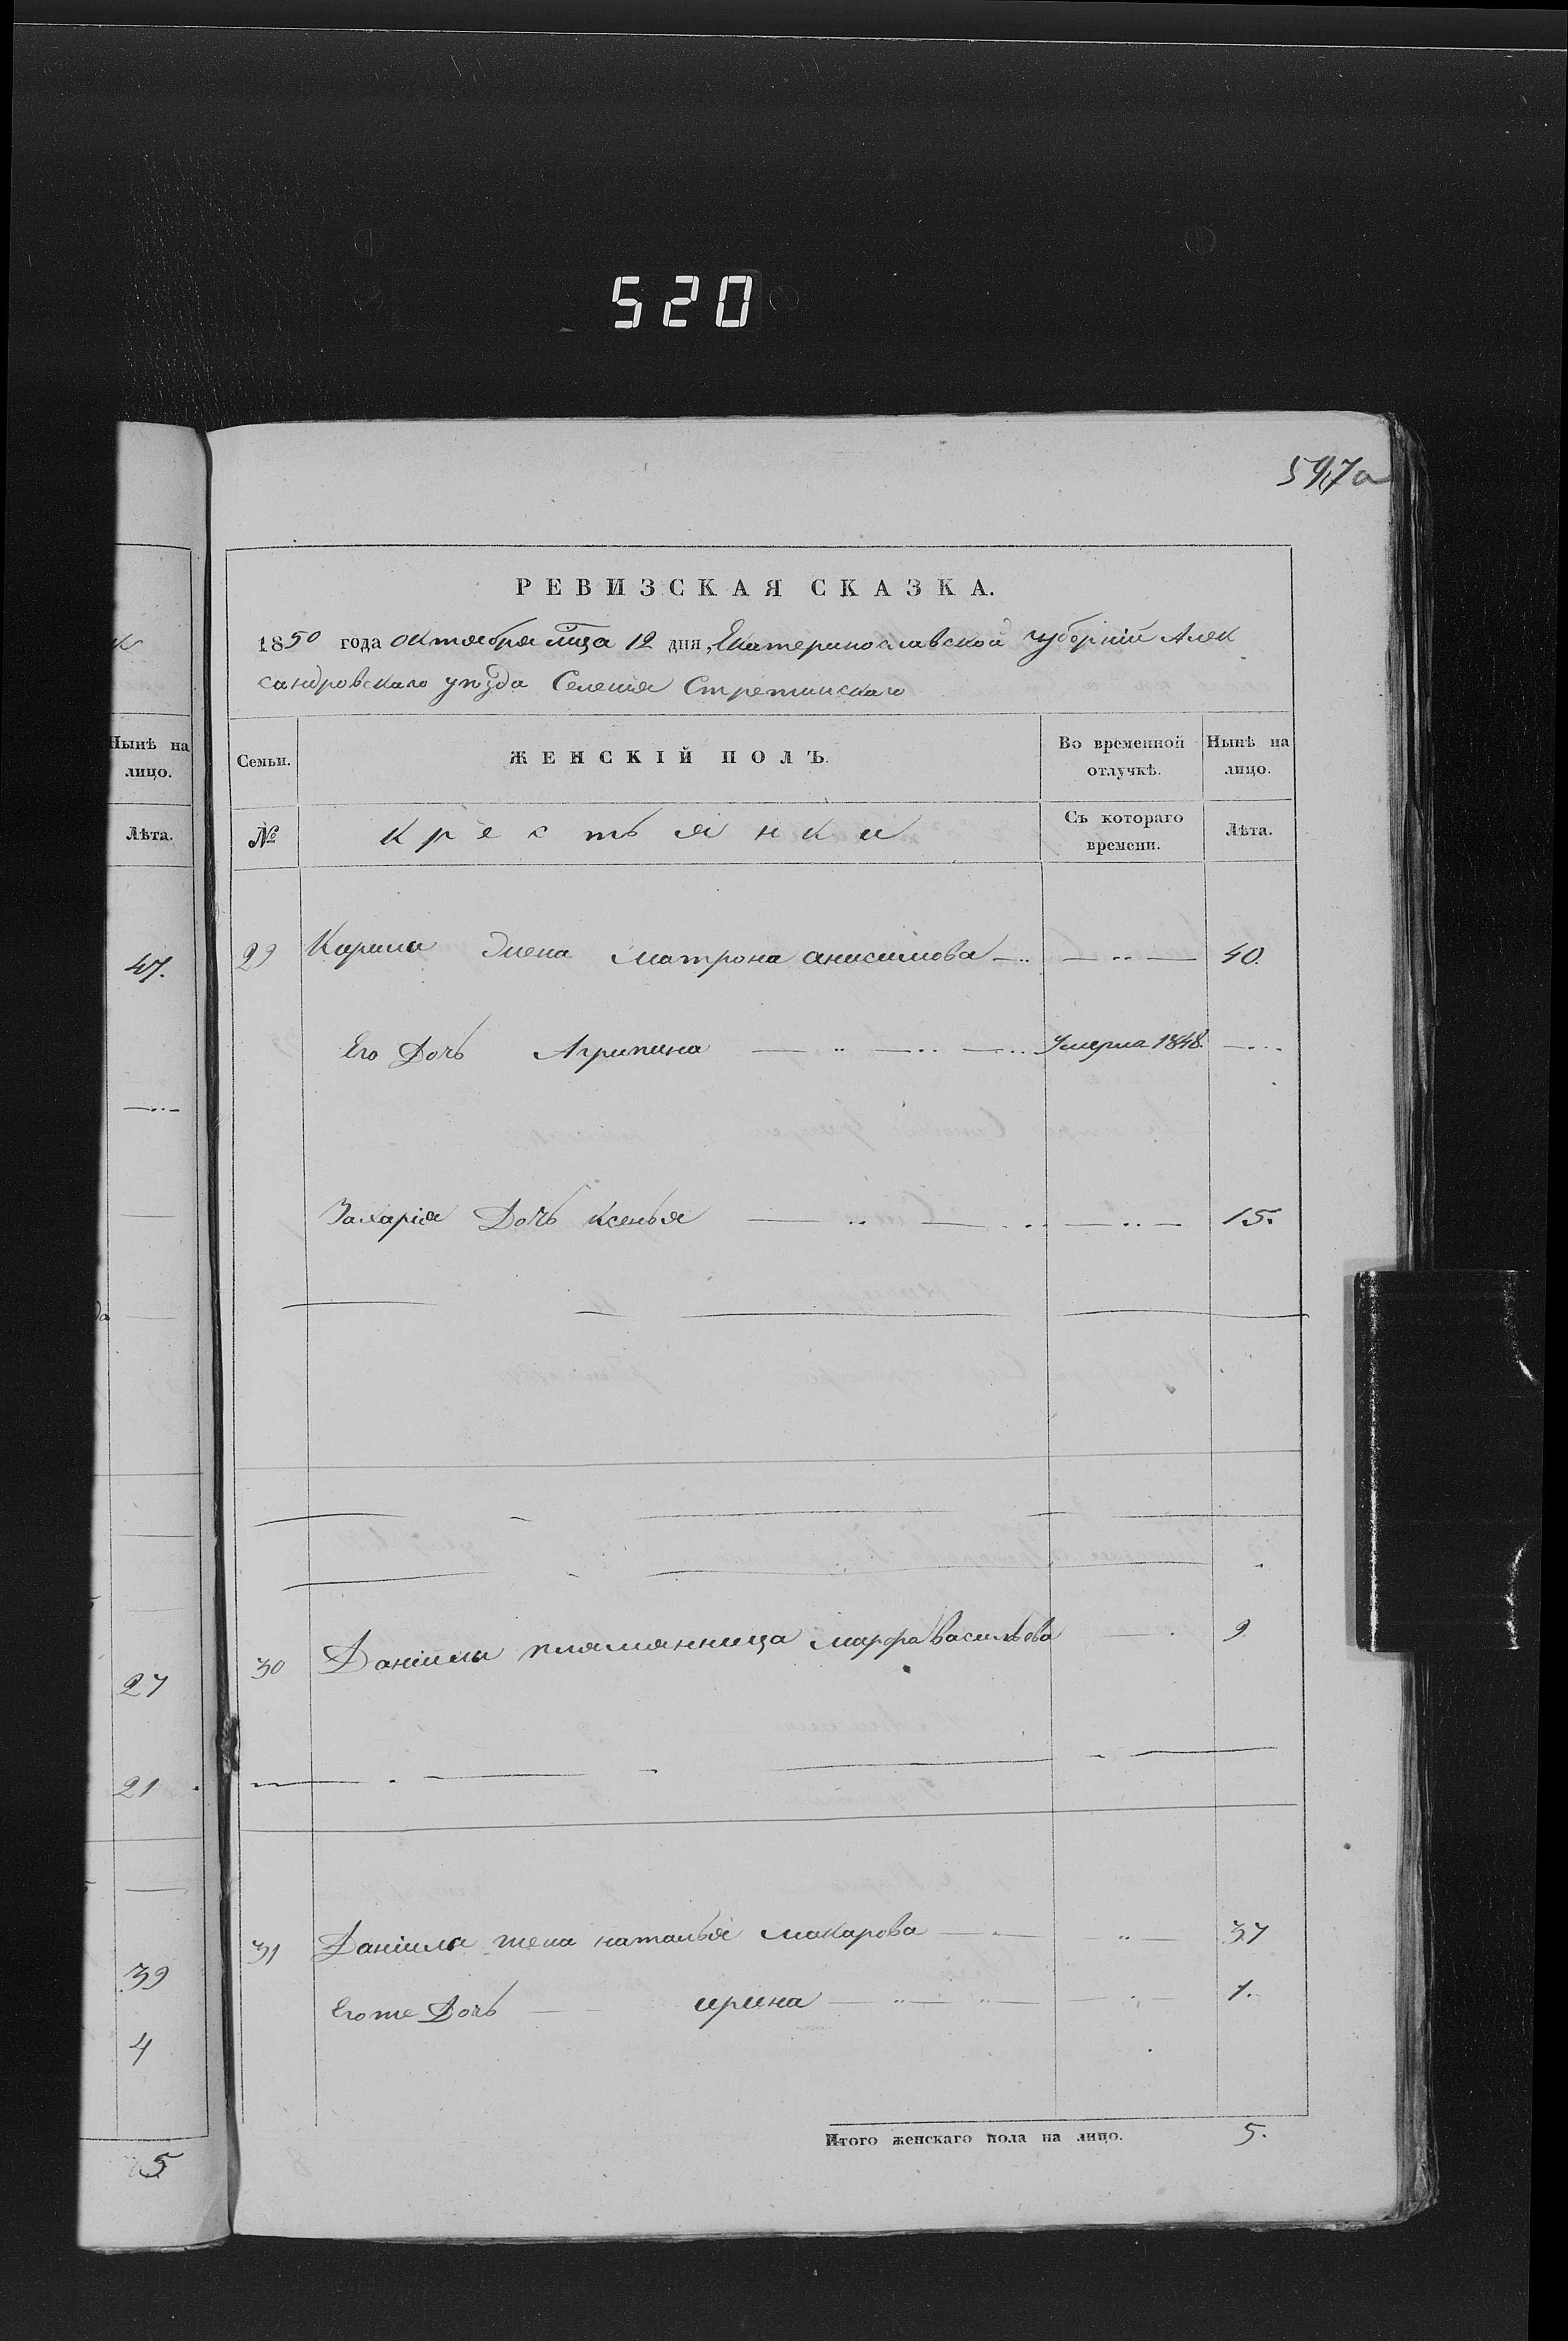 520
597а
к
Нынѣ на
лицо.
Лѣта.
47.
да
27
21
39
4
5
РЕВИЗСКАЯ СКАЗКА.
1850 года октября мца 12 дня, Екатеринославской губерніи Алек
сандровскаго уѣзда Селенія Стретинскаго
Семьи.
ЖЕНСКІЙ ПОЛЪ.
Во временной
отлучкѣ.
Нынѣ на
лицо.
№
крестьянки
Съ котораго
времени.
Лѣта.
29 Карила жена матрона анисимова 40.
Его Дочь Агрипина Умерла 1848.
Захарія Дочь ксенья 15.
30 Даніила племянница марфа васильева 9
31 Даніила жена наталья макарова 37
Егоже Дочь ирина 1.
Итого женскаго пола на лицо. 5.